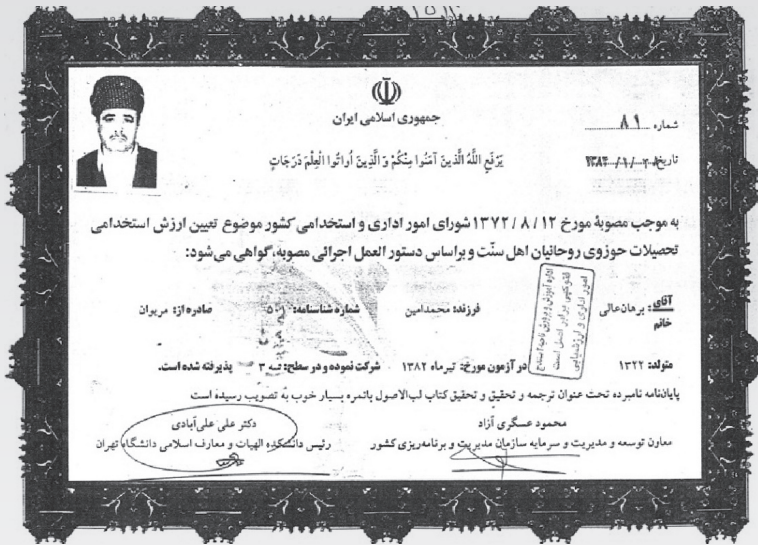 جمهوری اسلامی ایران
شماره ۸۱
تاریخ
یَرْفَعِ اللَّهُ الَّذینَ آمَنُوا مِنْکُمْ وَ الَّذینَ اُوتُوا الْعِلْمَ دَرَجَاتٍ
به موجب مصوبهٔ مورخ ۱۳۷۲/۸/۱۲ شورای امور اداری و استخدامی کشور موضوع تعیین ارزش استخدامی
تحصیلات حوزوی روحانیان اهل سنّت و براساس دستور العمل اجرائی مصوبه، گواهی می‌شود:
آقای: برهان عالی فرزند: محمدامین شماره شناسنامه: ۵۰۱ صادره از: مریوان
خانم
متولد: ۱۳۲۲ در آزمون مورخ: تیرماه ۱۳۸۲ شرکت نموده و در سطح: ۳ پذیرفته شده است.
پایان‌نامه نامبرده تحت عنوان ترجمه و تحقیق و تحقیق کتاب لب‌الاصول بانمره بسیار خوب به تصویب رسیده است
محمود عسگری آزاد
معاون توسعه و مدیریت و سرمایه سازمان مدیریت و برنامه‌ریزی کشور
دکتر علی علی‌آبادی
رئیس دانشکده الهیات و معارف اسلامی دانشگاه تهران
فتوکپی برابر اصل است
امور اداری و ارزشیابی